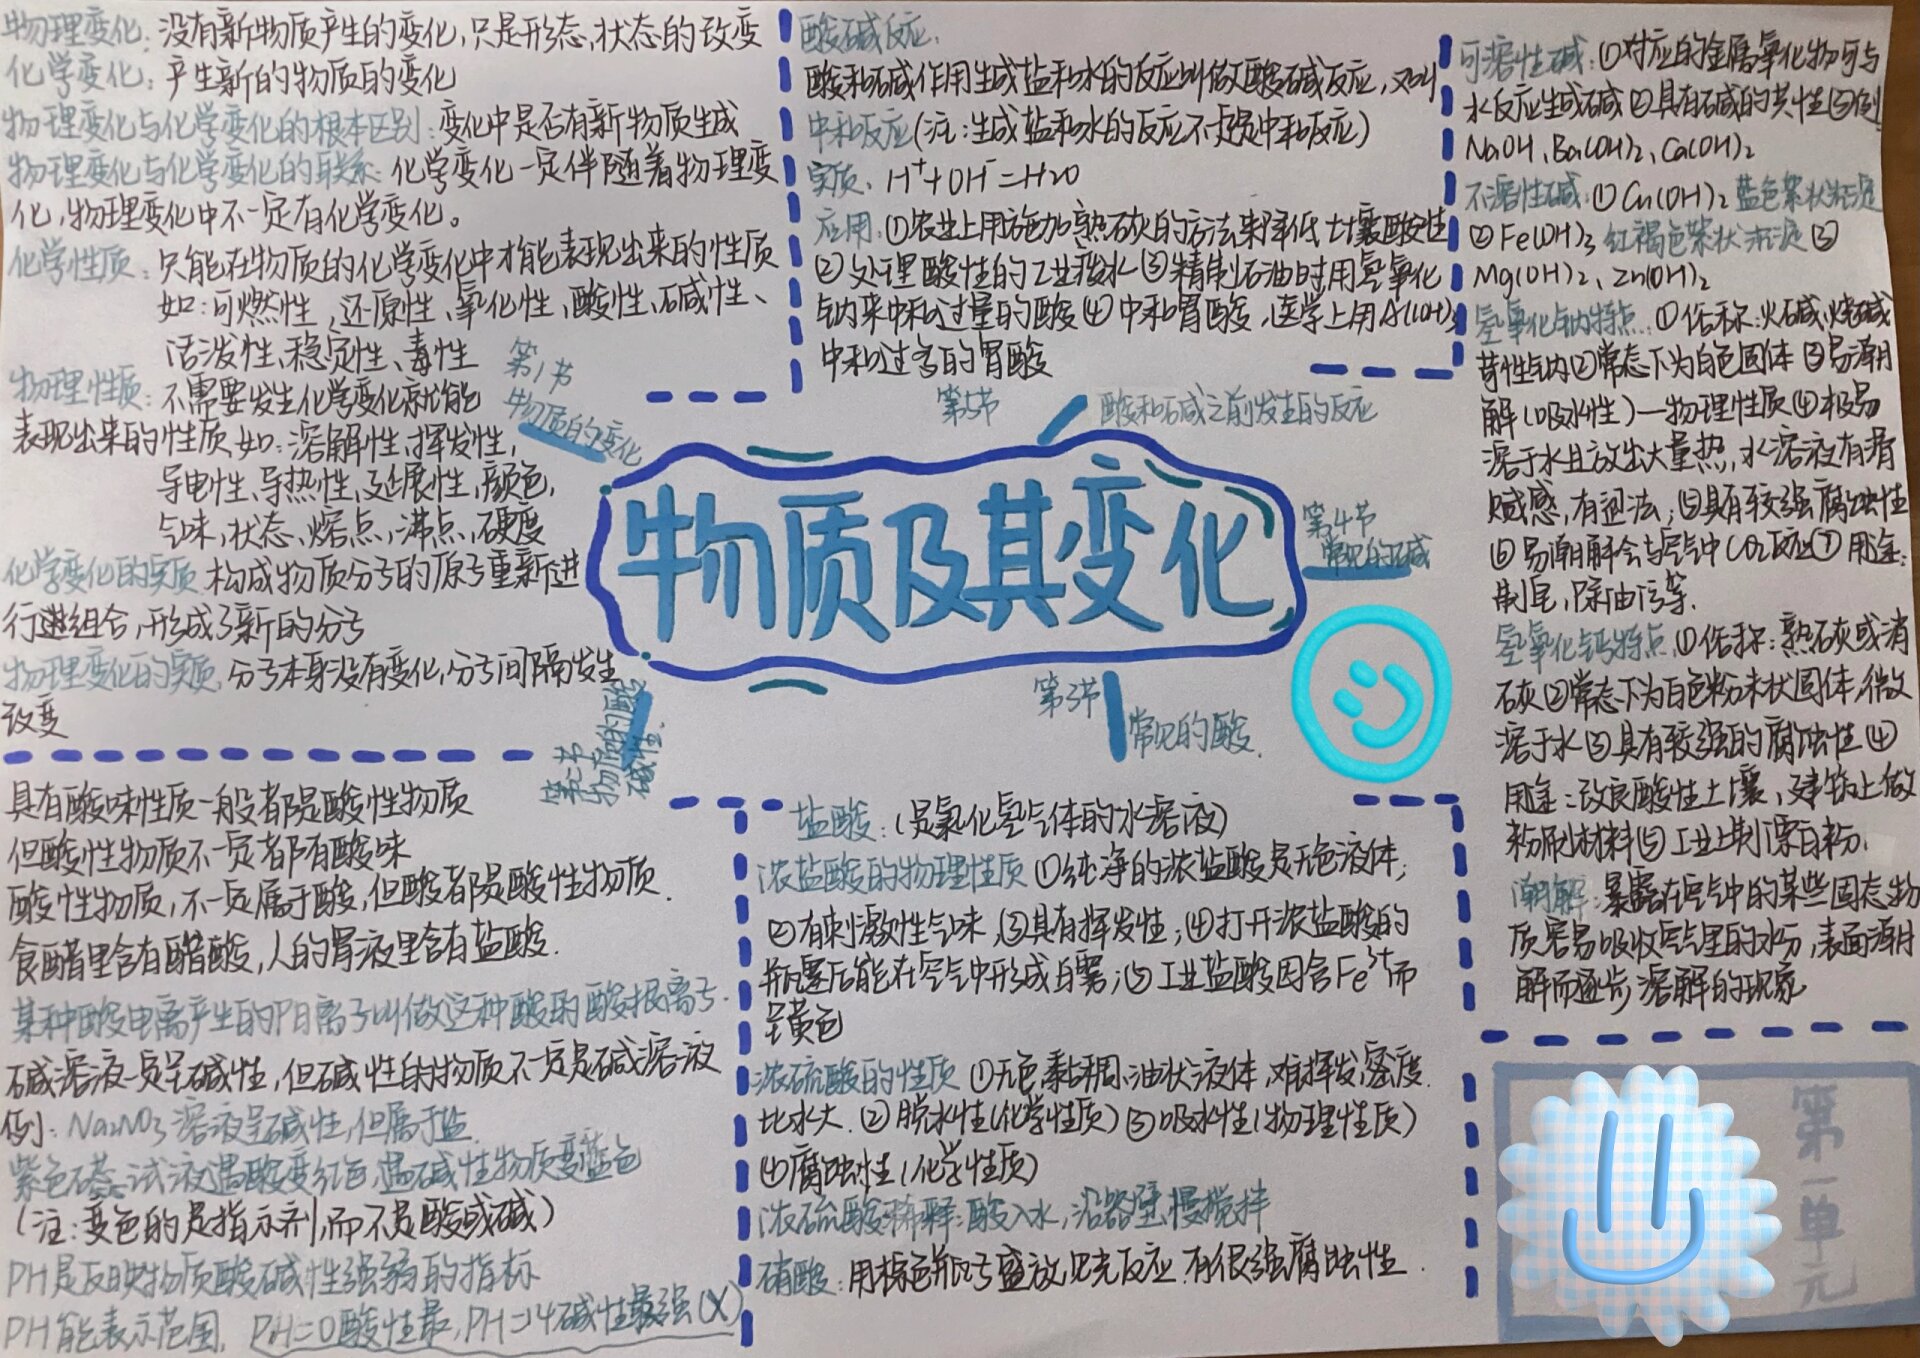 物质及其变化
第1节
物质的变化
物理变化：没有新物质产生的变化，只是形态、状态的改变
化学变化：产生新的物质的变化
物理变化与化学变化的根本区别：变化中是否有新物质生成
物理变化与化学变化的联系：化学变化一定伴随着物理变
化，物理变化中不一定有化学变化。
化学性质：只能在物质的化学变化中才能表现出来的性质
如：可燃性、还原性、氧化性、酸性、碱性、
活泼性、稳定性、毒性
物理性质：不需要发生化学变化就能
表现出来的性质如：溶解性、挥发性，
导电性、导热性、延展性、颜色，
气味，状态、熔点、沸点、硬度
化学变化的实质 构成物质分子的原子重新进
行组合，形成了新的分子
物理变化的实质，分子本身没有变化，分子间隔发生
改变
第二节
物质的酸
碱性．
具有酸味性质一般都是酸性物质
但酸性物质不一定都有酸味
酸性物质，不一定属于酸，但酸都是酸性物质．
食醋里含有醋酸，人的胃液里含有盐酸．
某种酸电离产生的阴离子叫做这种酸的酸根离子．
碱溶液一定呈碱性，但碱性的物质不一定是碱溶液
例：Na₂NO₃溶液呈碱性，但属于盐
紫色石蕊试液遇酸变红色，遇碱性物质变蓝色
（注：变色的是指示剂，而不是酸或碱）
PH是反映物质酸碱性强弱的指标
PH能表示范围．PH=0酸性最，PH=14碱性最强(X)
第3节
常见的酸．
盐酸：（是氯化氢气体的水溶液）
浓盐酸的物理性质 ①纯净的浓盐酸是无色液体；
②有刺激性气味，③具有挥发性；④打开浓盐酸的
瓶塞后能在空气中形成白雾；⑤工业盐酸因含Fe³⁺而
呈黄色
浓硫酸的性质 ①无色黏稠、油状液体，难挥发，密度
比水大．②脱水性（化学性质）③吸水性（物理性质）
④腐蚀性（化学性质）
浓硫酸稀释：酸入水，沿器壁慢搅拌
硝酸：用棕色瓶子盛放见光反应．有很强腐蚀性．
第4节
常见的碱
可溶性碱：①对应的金属氧化物可与
水反应生成碱②具有碱的共性③例
NaOH、Ba(OH)₂、Ca(OH)₂
不溶性碱：①Cu(OH)₂ 蓝色絮状沉淀
②Fe(OH)₃ 红褐色絮状沉淀③
Mg(OH)₂、Zn(OH)₂
氢氧化钠特点．①俗称：火碱、烧碱
苛性钠②常态下为白色固体③易潮
解（吸水性）—物理性质④极易
溶于水且放出大量热，水溶液有滑
腻感，有涩法；⑤具有较强腐蚀性
⑥易潮解会与空气中CO₂反应⑦用途：
制皂，除油污等．
氢氧化钙特点．①俗称：熟石灰或消
石灰②常态下为白色粉末状固体，微
溶于水③具有较强的腐蚀性④
用途：改良酸性土壤、建筑上做
粉刷材料⑤工业上制漂白粉．
潮解：暴露在空气中的某些固态物
质容易吸收空气里的水分，表面潮
解而逐步溶解的现象
第5节
酸和碱之前发生的反应
酸碱反应．
酸和碱作用生成盐和水的反应叫做酸碱反应，又叫
中和反应（注：生成盐和水的反应不一定是中和反应）
实质．H⁺+OH⁻=H₂O
应用．①农业上用施加熟石灰的方法来降低土壤酸性
②处理酸性的工业废水③精制石油时用氢氧化
钠来中和过量的酸④中和胃酸，医学上用Al(OH)₃
中和过多的胃酸
第一单元